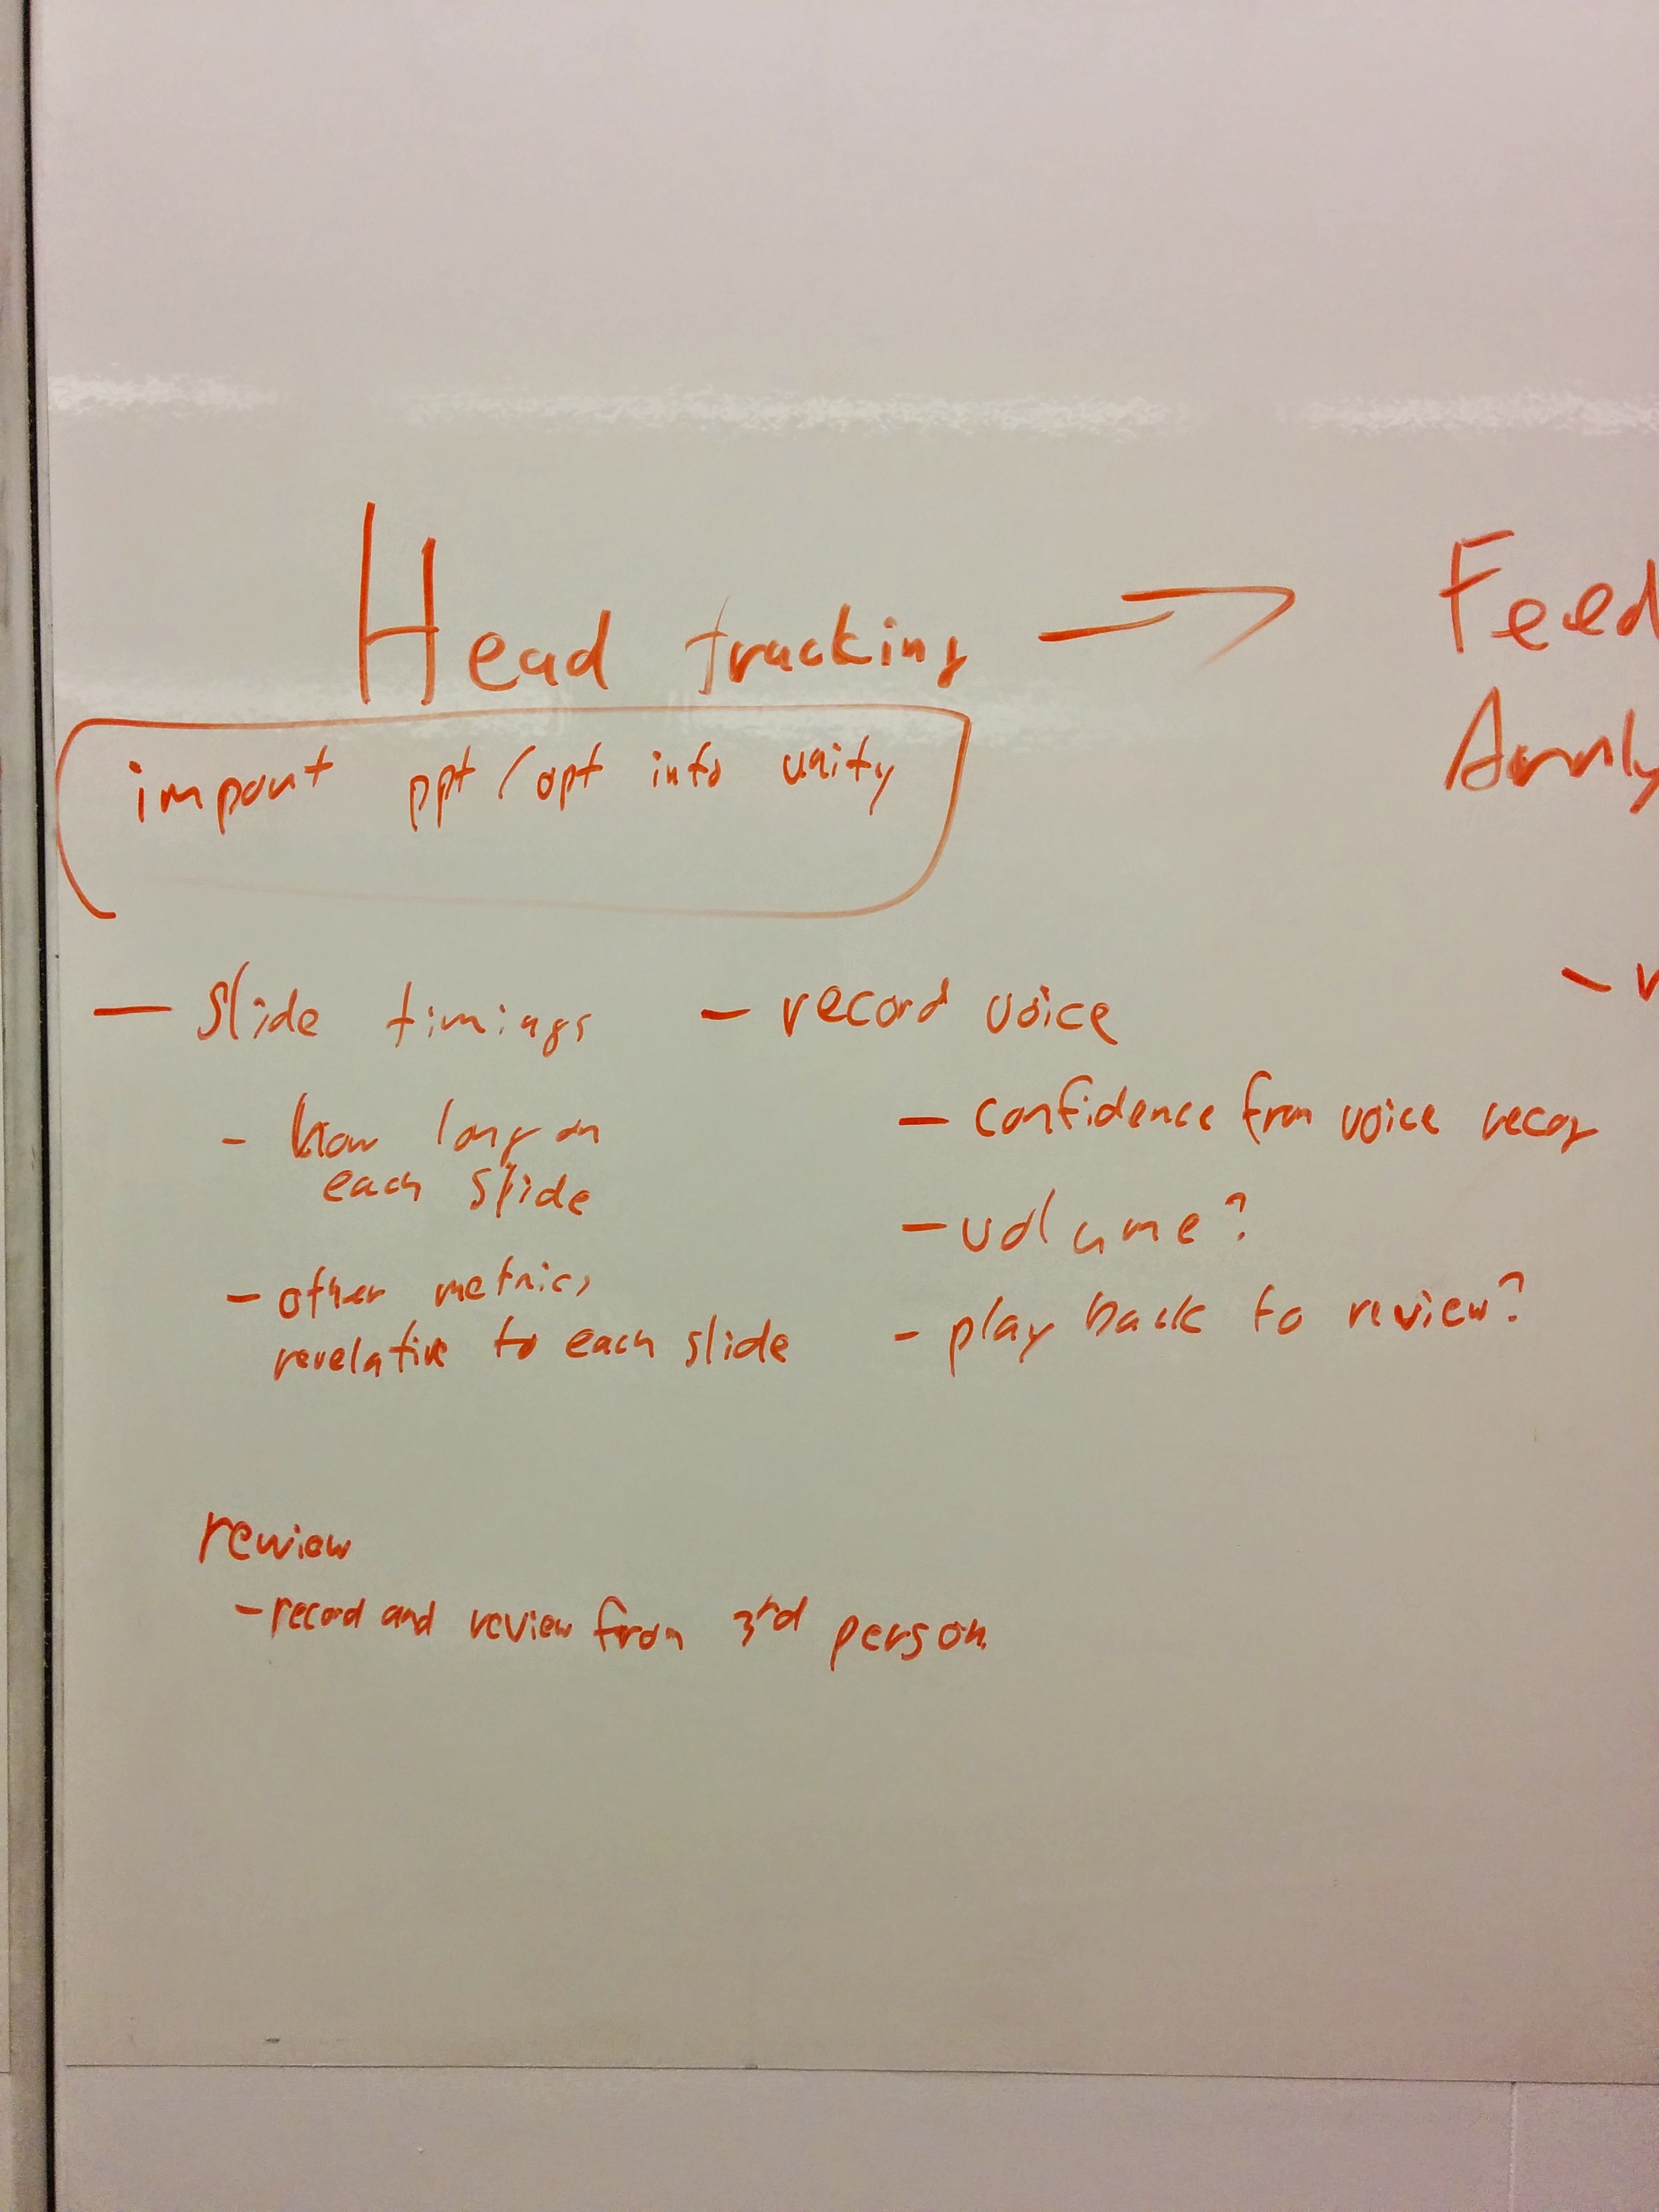 Head tracking → Feed
Analy
import ppt/opt into unity
- slide timings
- how long on
each slide
- other metrics
revelative to each slide
- record voice
- confidence from voice recog
- volume?
- play back to review?
review
- record and review from 3rd person